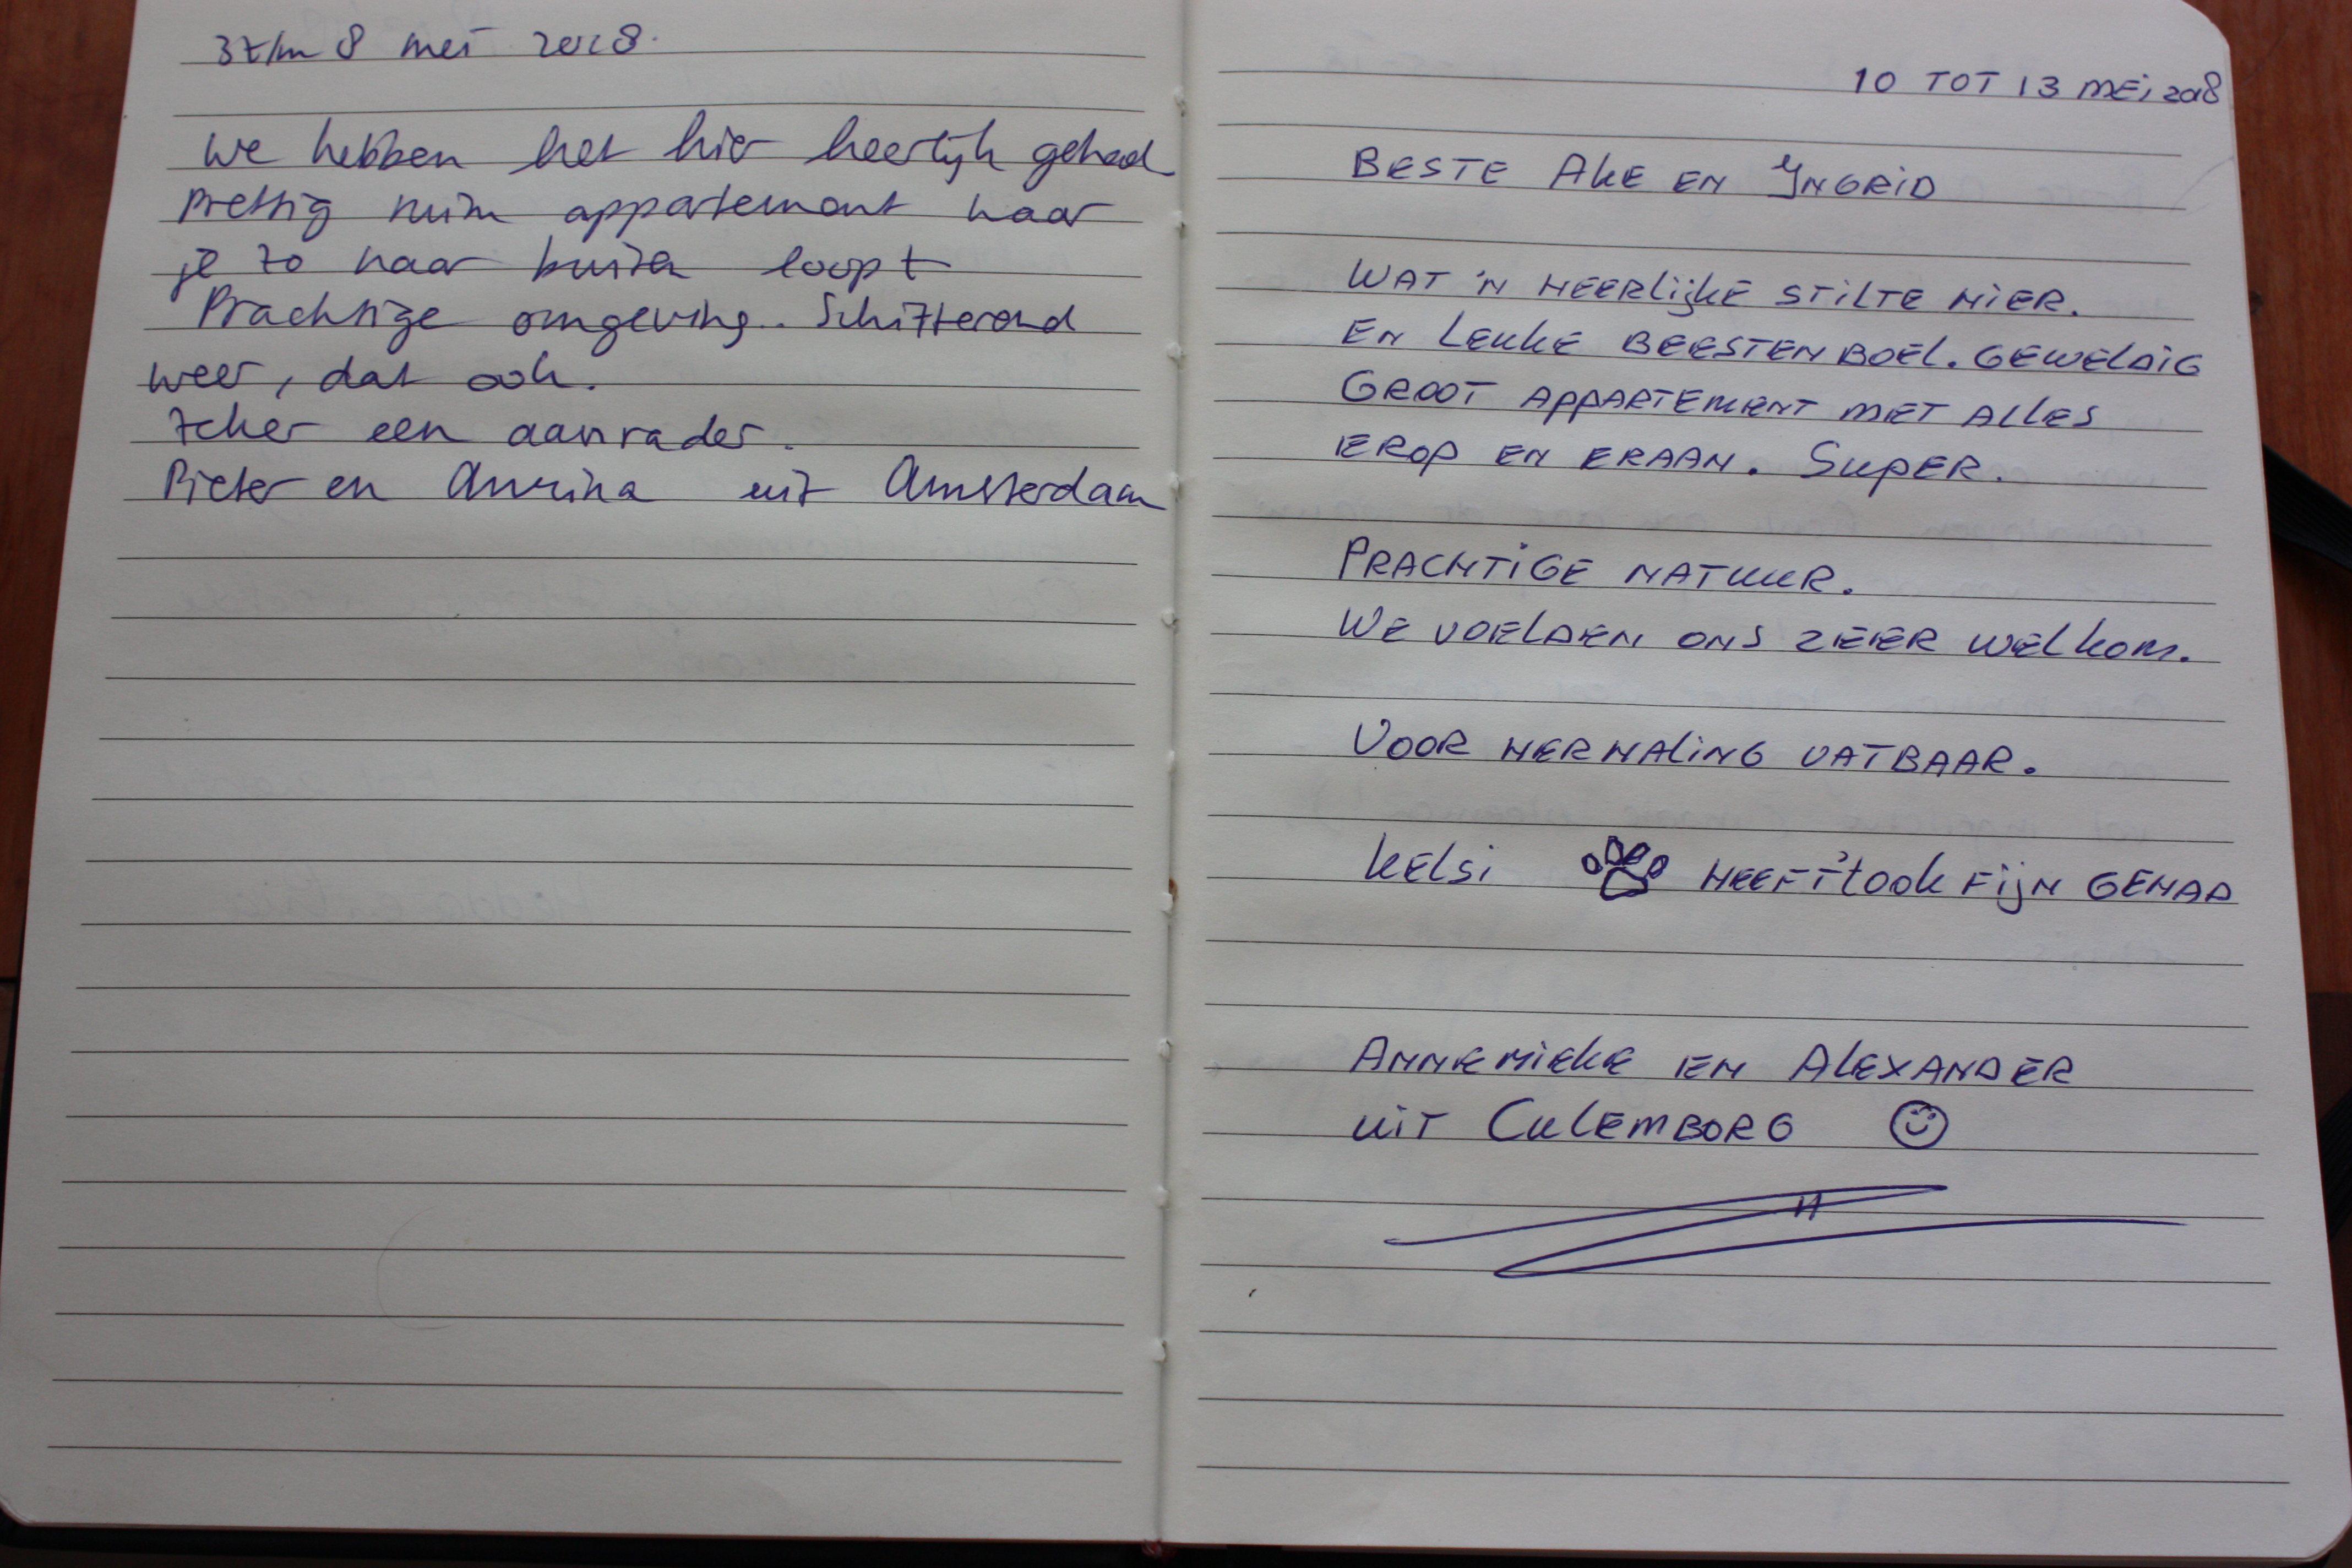 3 t/m 8 mei 2018.
We hebben het hier heerlijk gehad
prettig ruim appartement waar
je zo naar buiten loopt
Prachtige omgeving. Schitterend
weer, dat ook.
Zeker een aanrader.
Pieter en uit Amsterdam
10 TOT 13 MEI 2018
BESTE AKE EN INGRID
WAT 'N HEERLIJKE STILTE HIER.
EN LEUKE BEESTENBOEL. GEWELDIG
GROOT APPARTEMENT MET ALLES
EROP EN ERAAN. SUPER.
PRACHTIGE NATUUR.
WE VOELDEN ONS ZEER WELKOM.
VOOR HERHALING VATBAAR.
KELSI HEEFT 'T OOK FIJN GEHAD
ANNEMIEKE EN ALEXANDER
UIT CULEMBORG